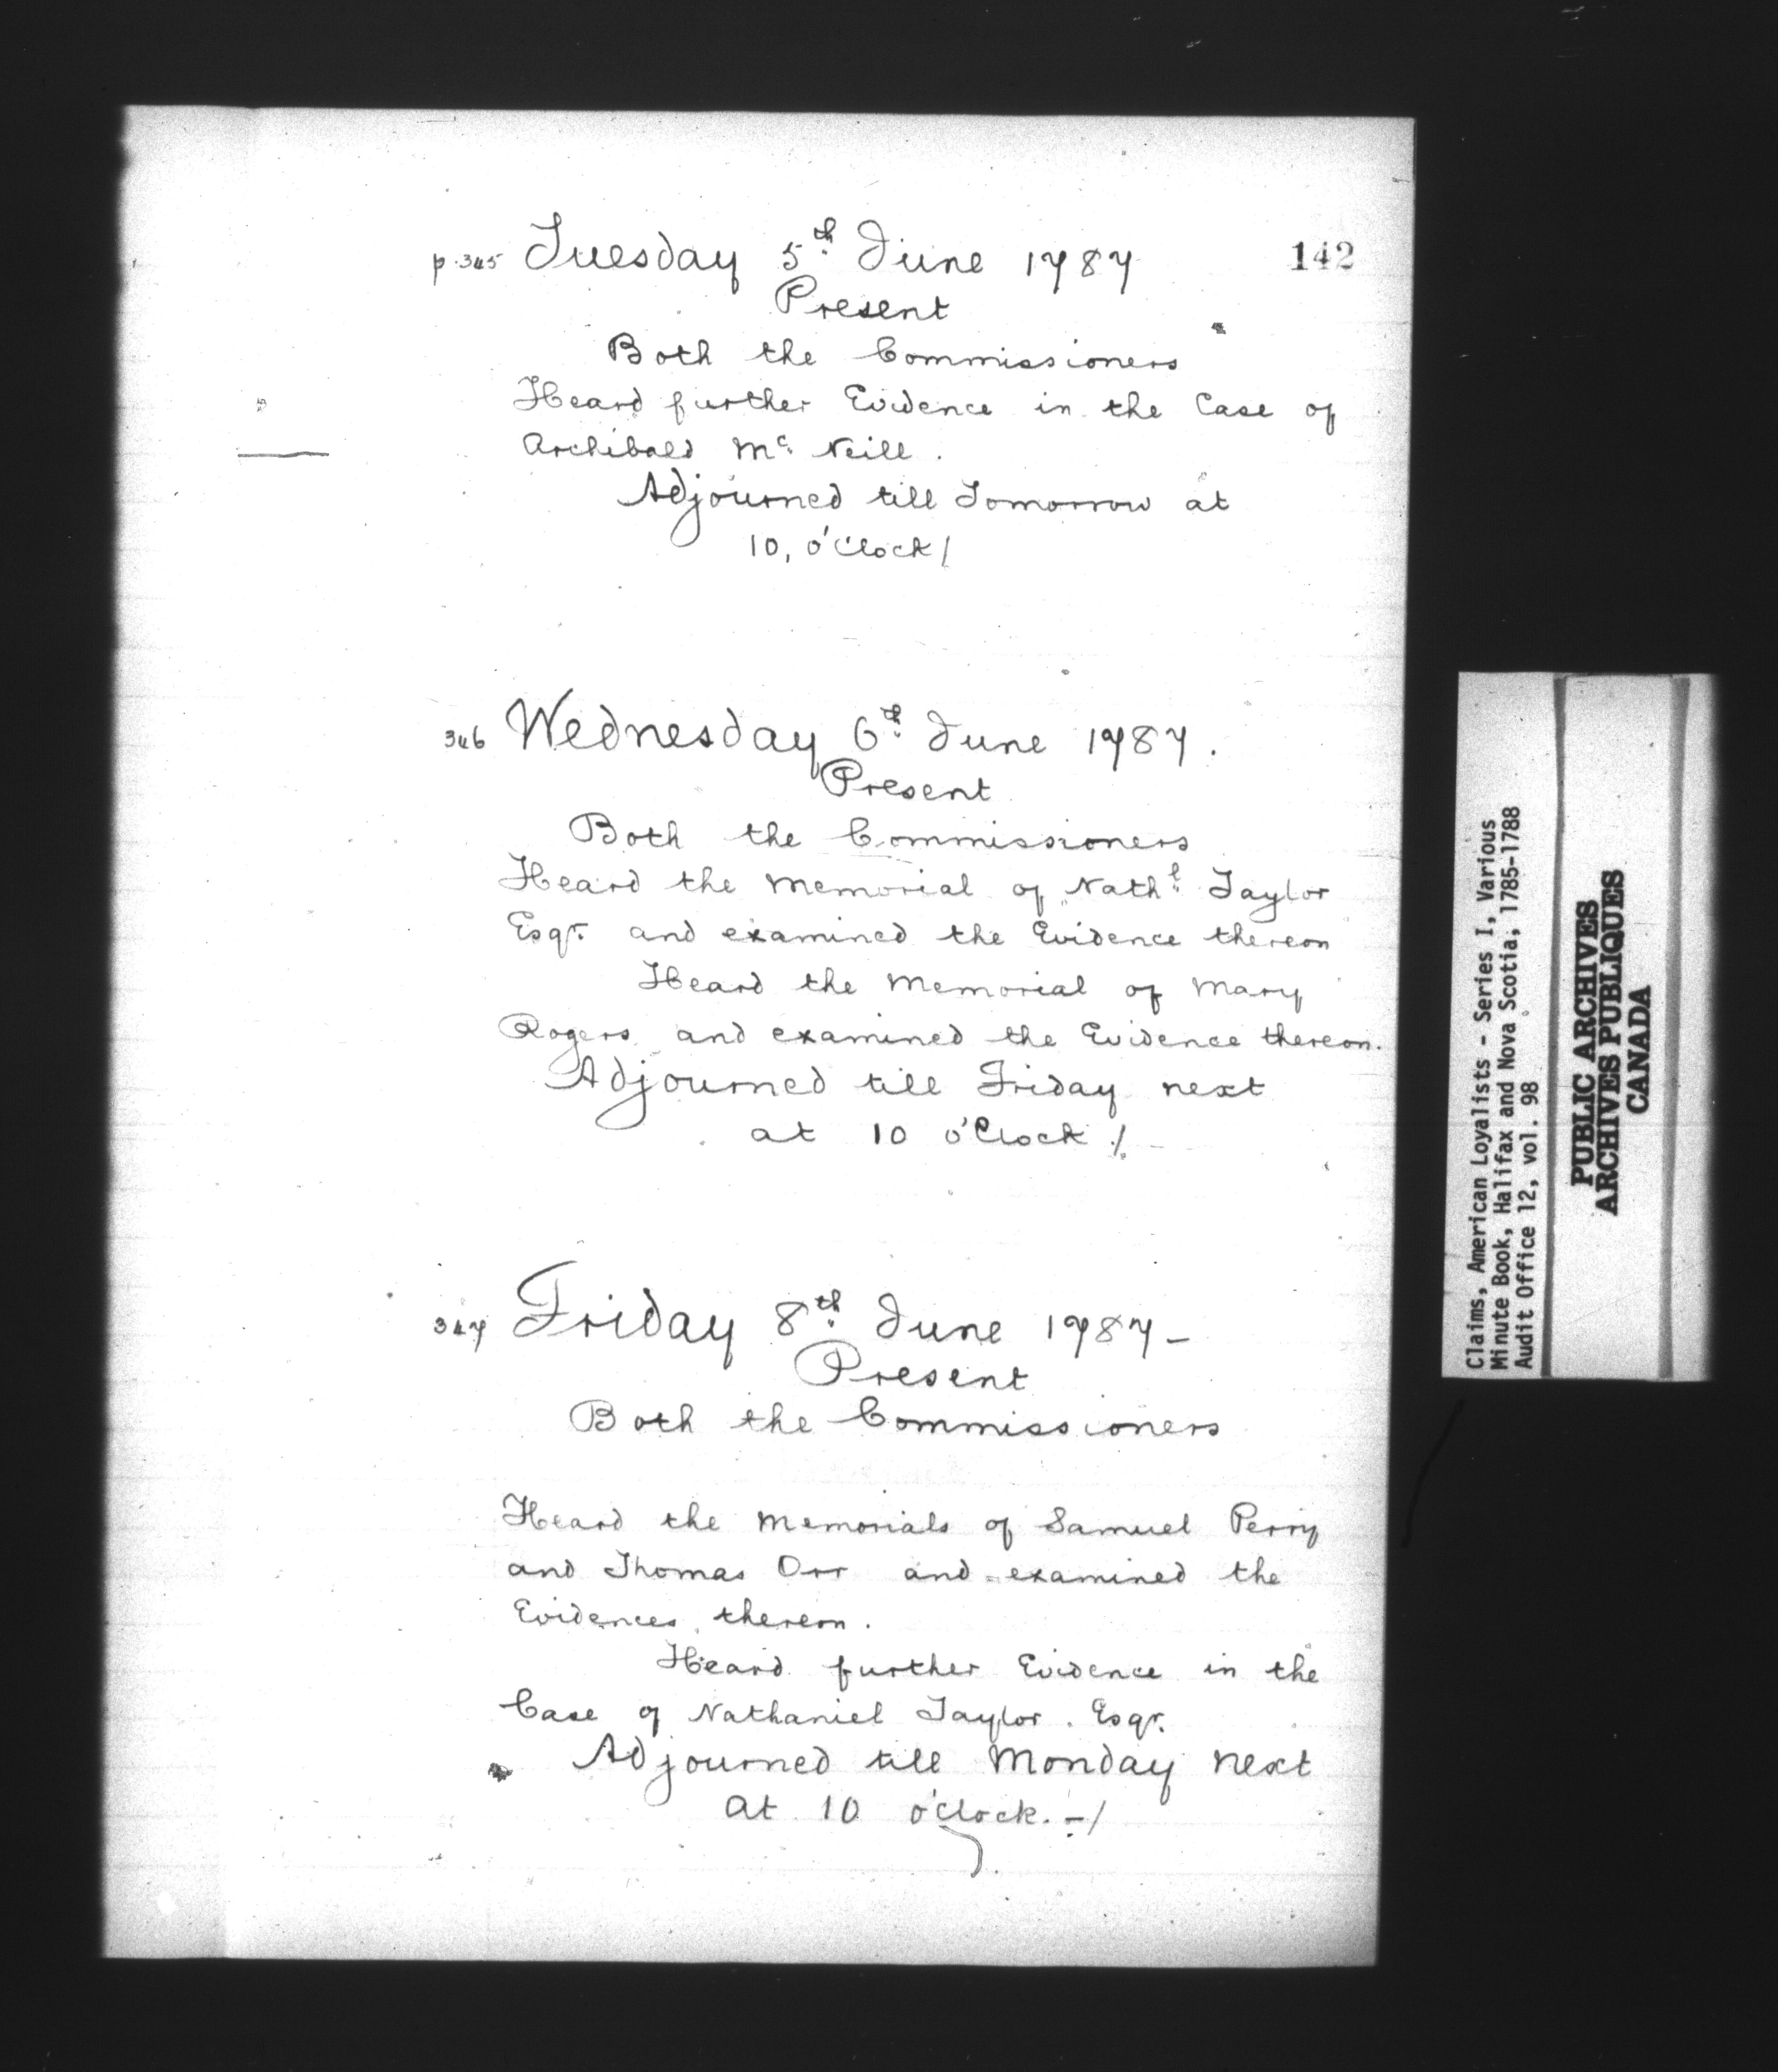 142
p. 345 Tuesday 5th June 1787
Present
Both the Commissioners
Heard further Evidence in the Case of
Archibald Mc Neill .
Adjourned till Tomorrow at
10, o'Clock /
346 Wednesday 6th June 1787 .
Present
Both the Commissioners
Heard the Memorial of Nathl Taylor
Esqr. and examined the Evidence thereon
Heard the Memorial of Mary
Rogers and examined the Evidence thereon.
Adjourned till Friday next
at 10 o'Clock ./
347 Friday 8th June 1787 –
Present
Both the Commissioners
Heard the Memorials of Samuel Perry
and Thomas Orr and examined the
Evidences thereon .
Heard further Evidence in the
Case of Nathaniel Taylor . Esqr.
Adjourned till Monday next
at 10 o'clock. –/
Claims, American Loyalists - Series I, Various
Minute Book, Halifax and Nova Scotia, 1785-1788
Audit Office 12, vol. 98
PUBLIC ARCHIVES
ARCHIVES PUBLIQUES
CANADA